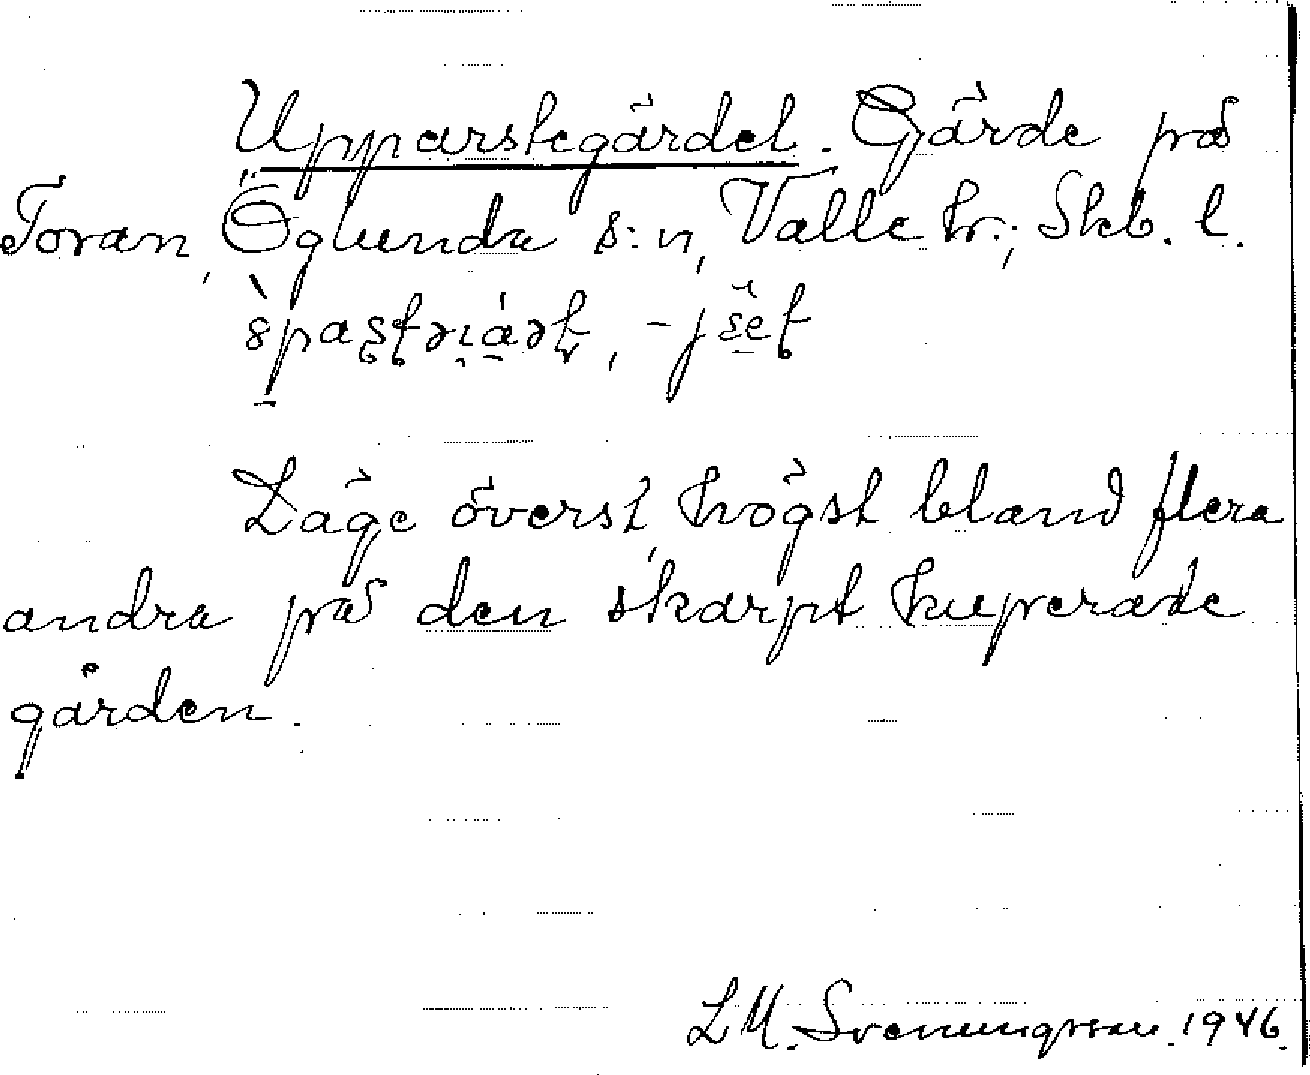 Upparstegärdet. Gärde på
Toran, Öglunda s:n, Valle hr.; Skb. l.
Läge överst, högst bland flera
andra på den skarpt kuperade
gården.
LM. Svenungsson. 1946.